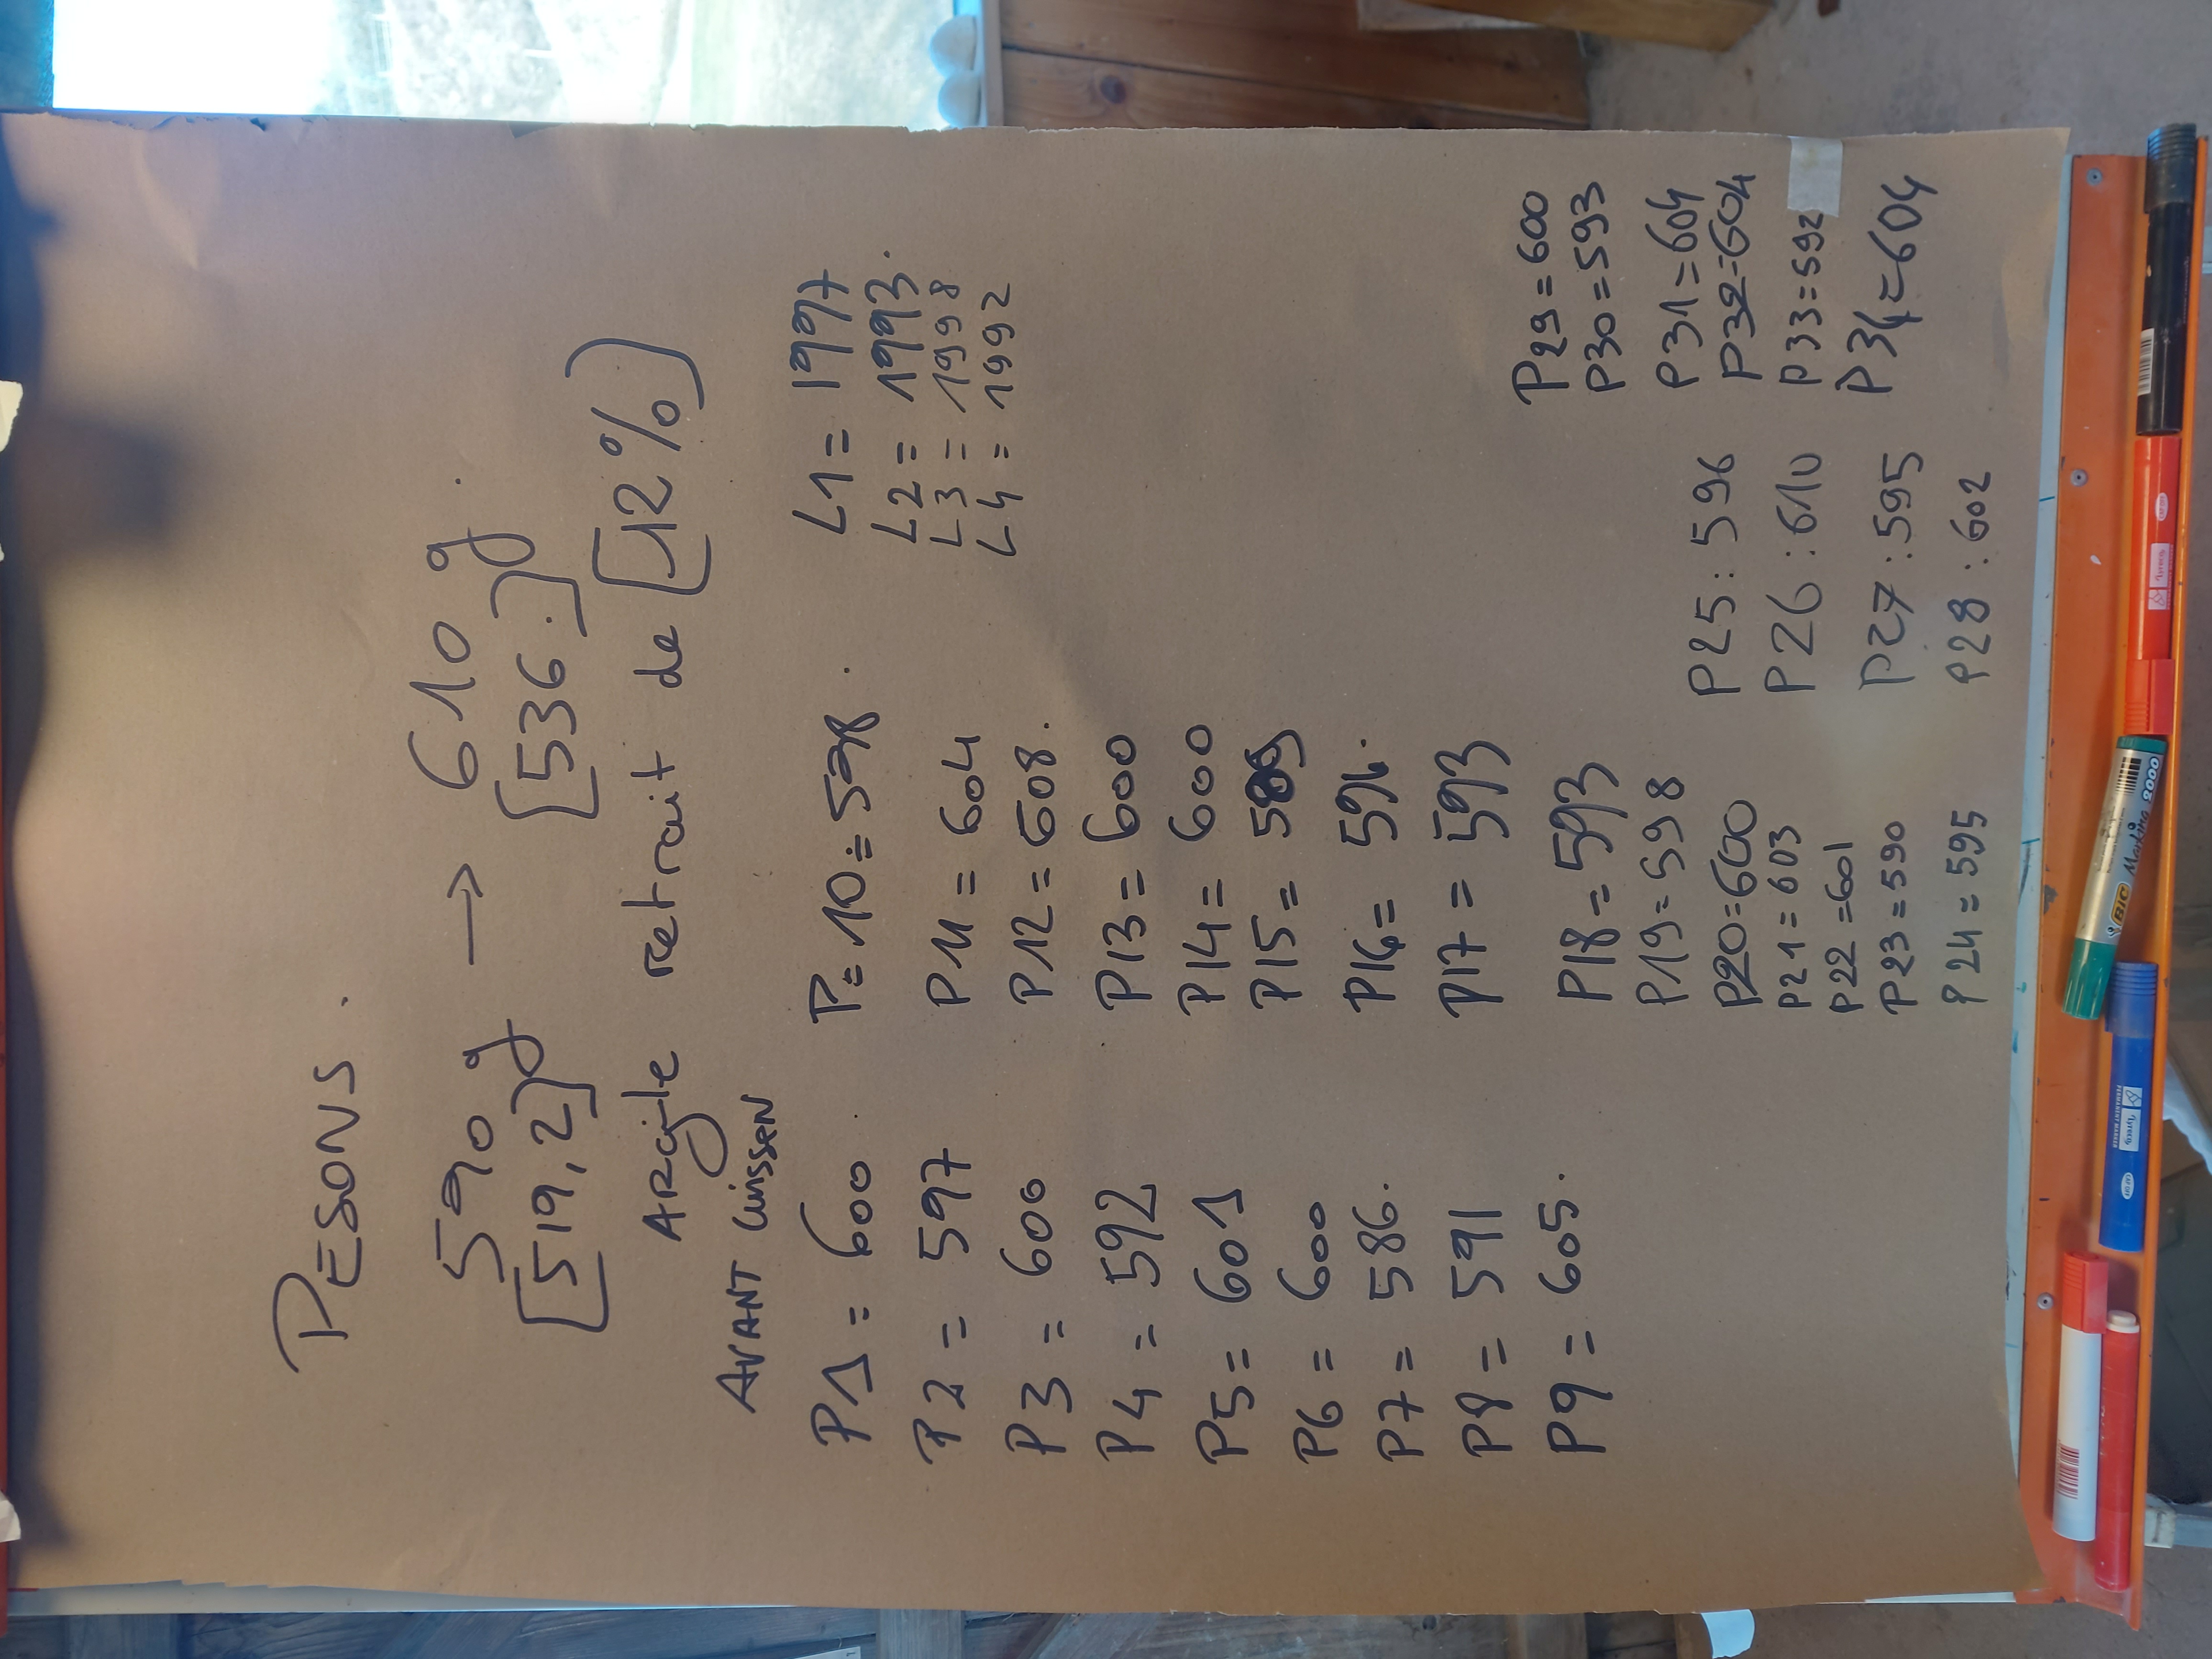 PESONS.
590 → 610g
[519,2]g [536.]
ARgile retrait de [12%]
AVANT Cuisson
P1 = 600
P2 = 597
P3 = 600
P4 = 592
P5 = 601
P6 = 600
P7 = 586.
P8 = 591
P9 = 605.
P= 10 = 598
P11 = 604
P12 = 608.
P13 = 600
P14 = 600
P15 =
P16 = 596.
P17 = 593
P18 = 593
P19 = 598
P20 = 600
P21 = 603
P22 = 601
P23 = 590
P24 = 595
L1 = 1997
L2 = 1993.
L3 = 1998
L4 = 1992
P25 : 596
P26 : 610
P27 : 595
P28 : 602
P29 = 600
P30 = 593
P31 = 604
P32 = 604
P33 = 592
P34 = 604
BIC Marking 2000
PERMANENT MARKER